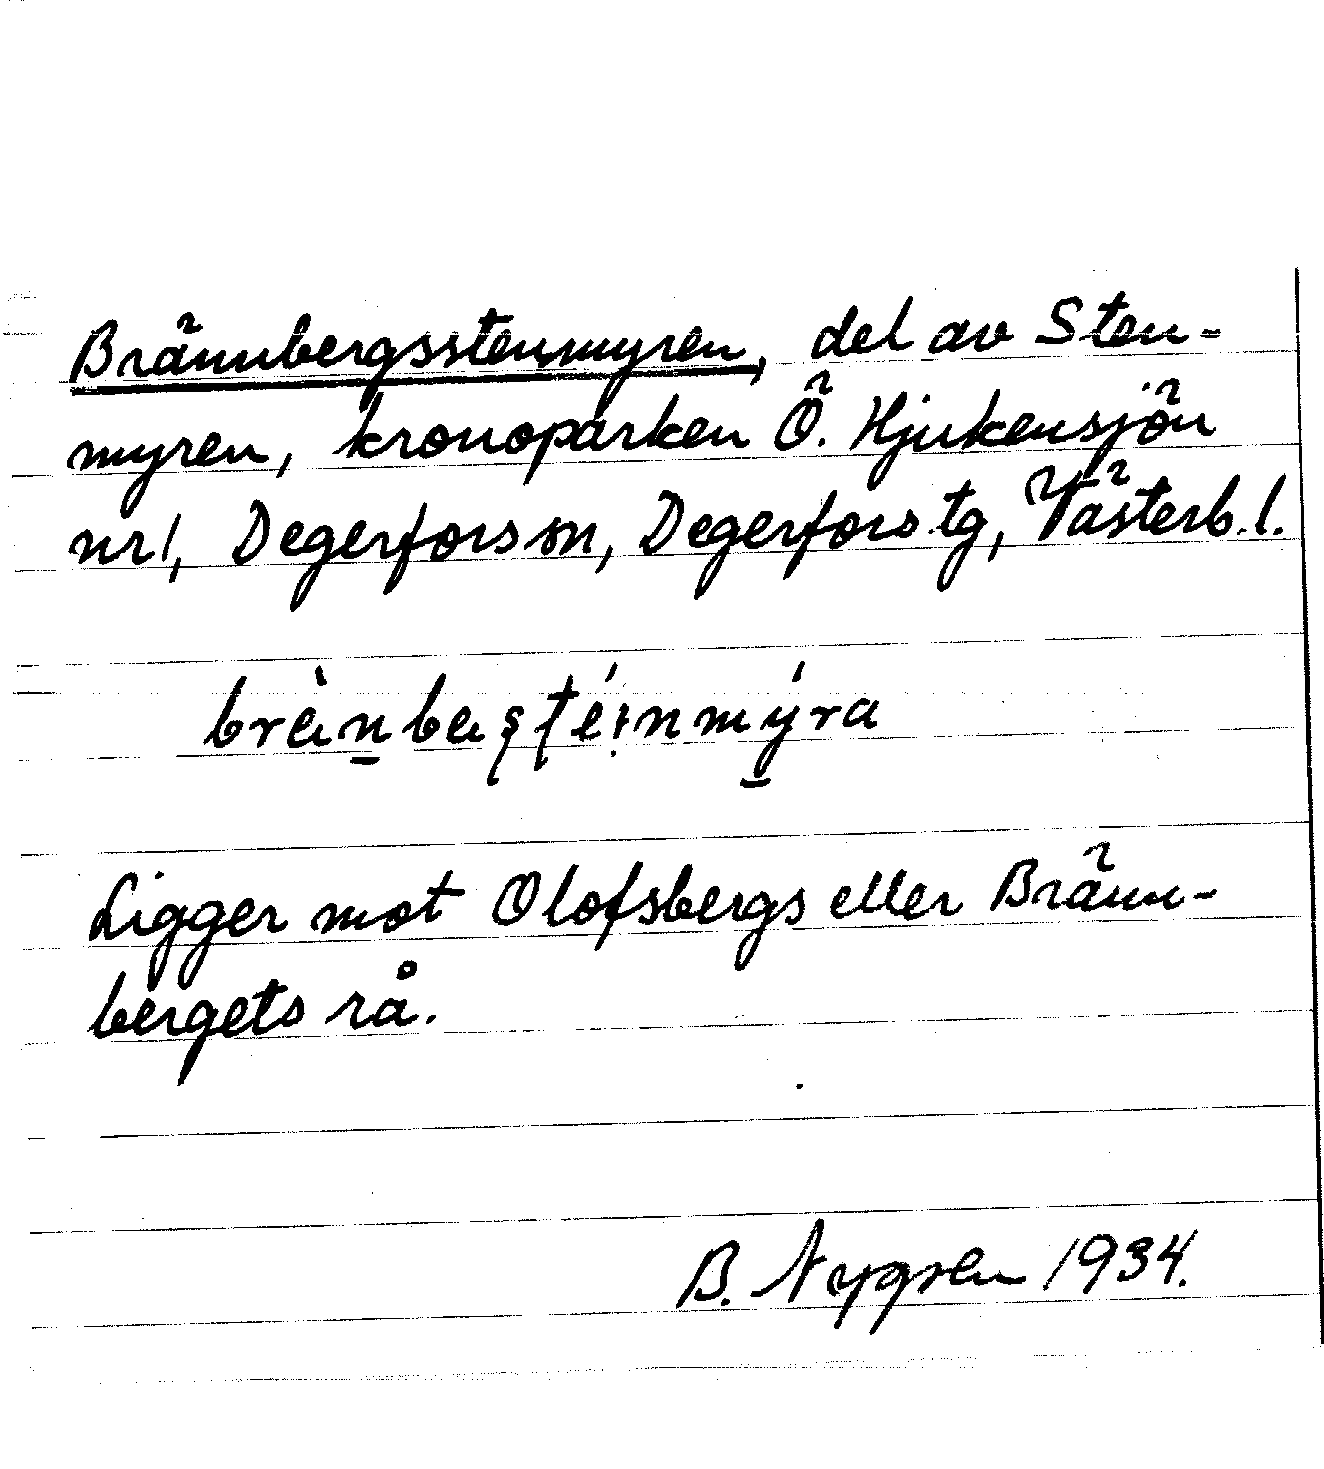 Brännbergsstenmyren, del av Sten-
myren, kronoparken Ö. Hjukensjön
nr 1, Degerfors sn, Degerfors tg, Västerb. l.
Ligger mot Olofsbergs eller Bränn-
bergets rå.
B. Nygren 1934.